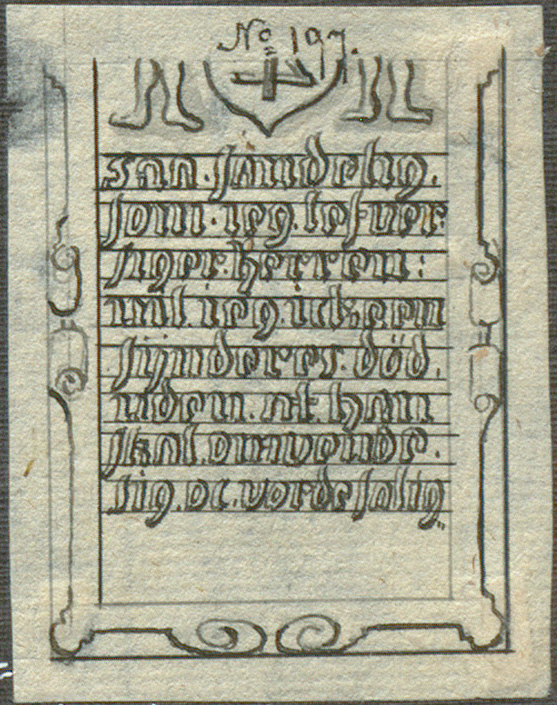 No 197.
saa.sandelig.
som.ieg.lefuer
siger.herren:
wil.ieg.icke.en
sijnderes.död.
uden.at.han
skal.omvende.
sig.oc.vorde salig